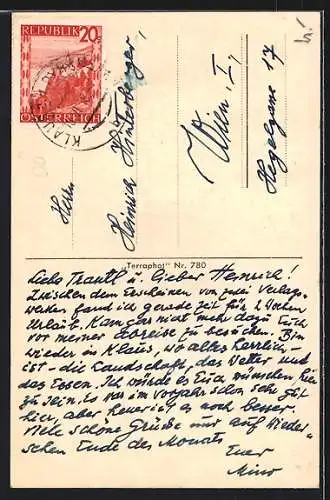 REPUBLIK 20g
ÖSTERREICH
KLAUS
Herrn
Heinrich Hinterberger,
Wien, I,
Hegelgasse 17
„Terraphot" Nr. 780
Liebe Trautl u. lieber Heinrich!
Zwischen dem Erscheinen von zwei Verlags-
werken fand ich gerade Zeit für 2 Wochen
Urlaub. Kam gar nicht mehr dazu Euch
vor meiner Abreise zu besuchen. Bin
wieder in Klaus, wo alles herrlich
ist - die Landschaft, das Wetter und
das Essen. Ich würde es Euch wünschen hier
zu sein. Es war im Vorjahr schon sehr gut
hier, aber heuer ist es noch besser.
Viele schöne Grüsse und auf Wieder-
sehen Ende des Monats
Euer